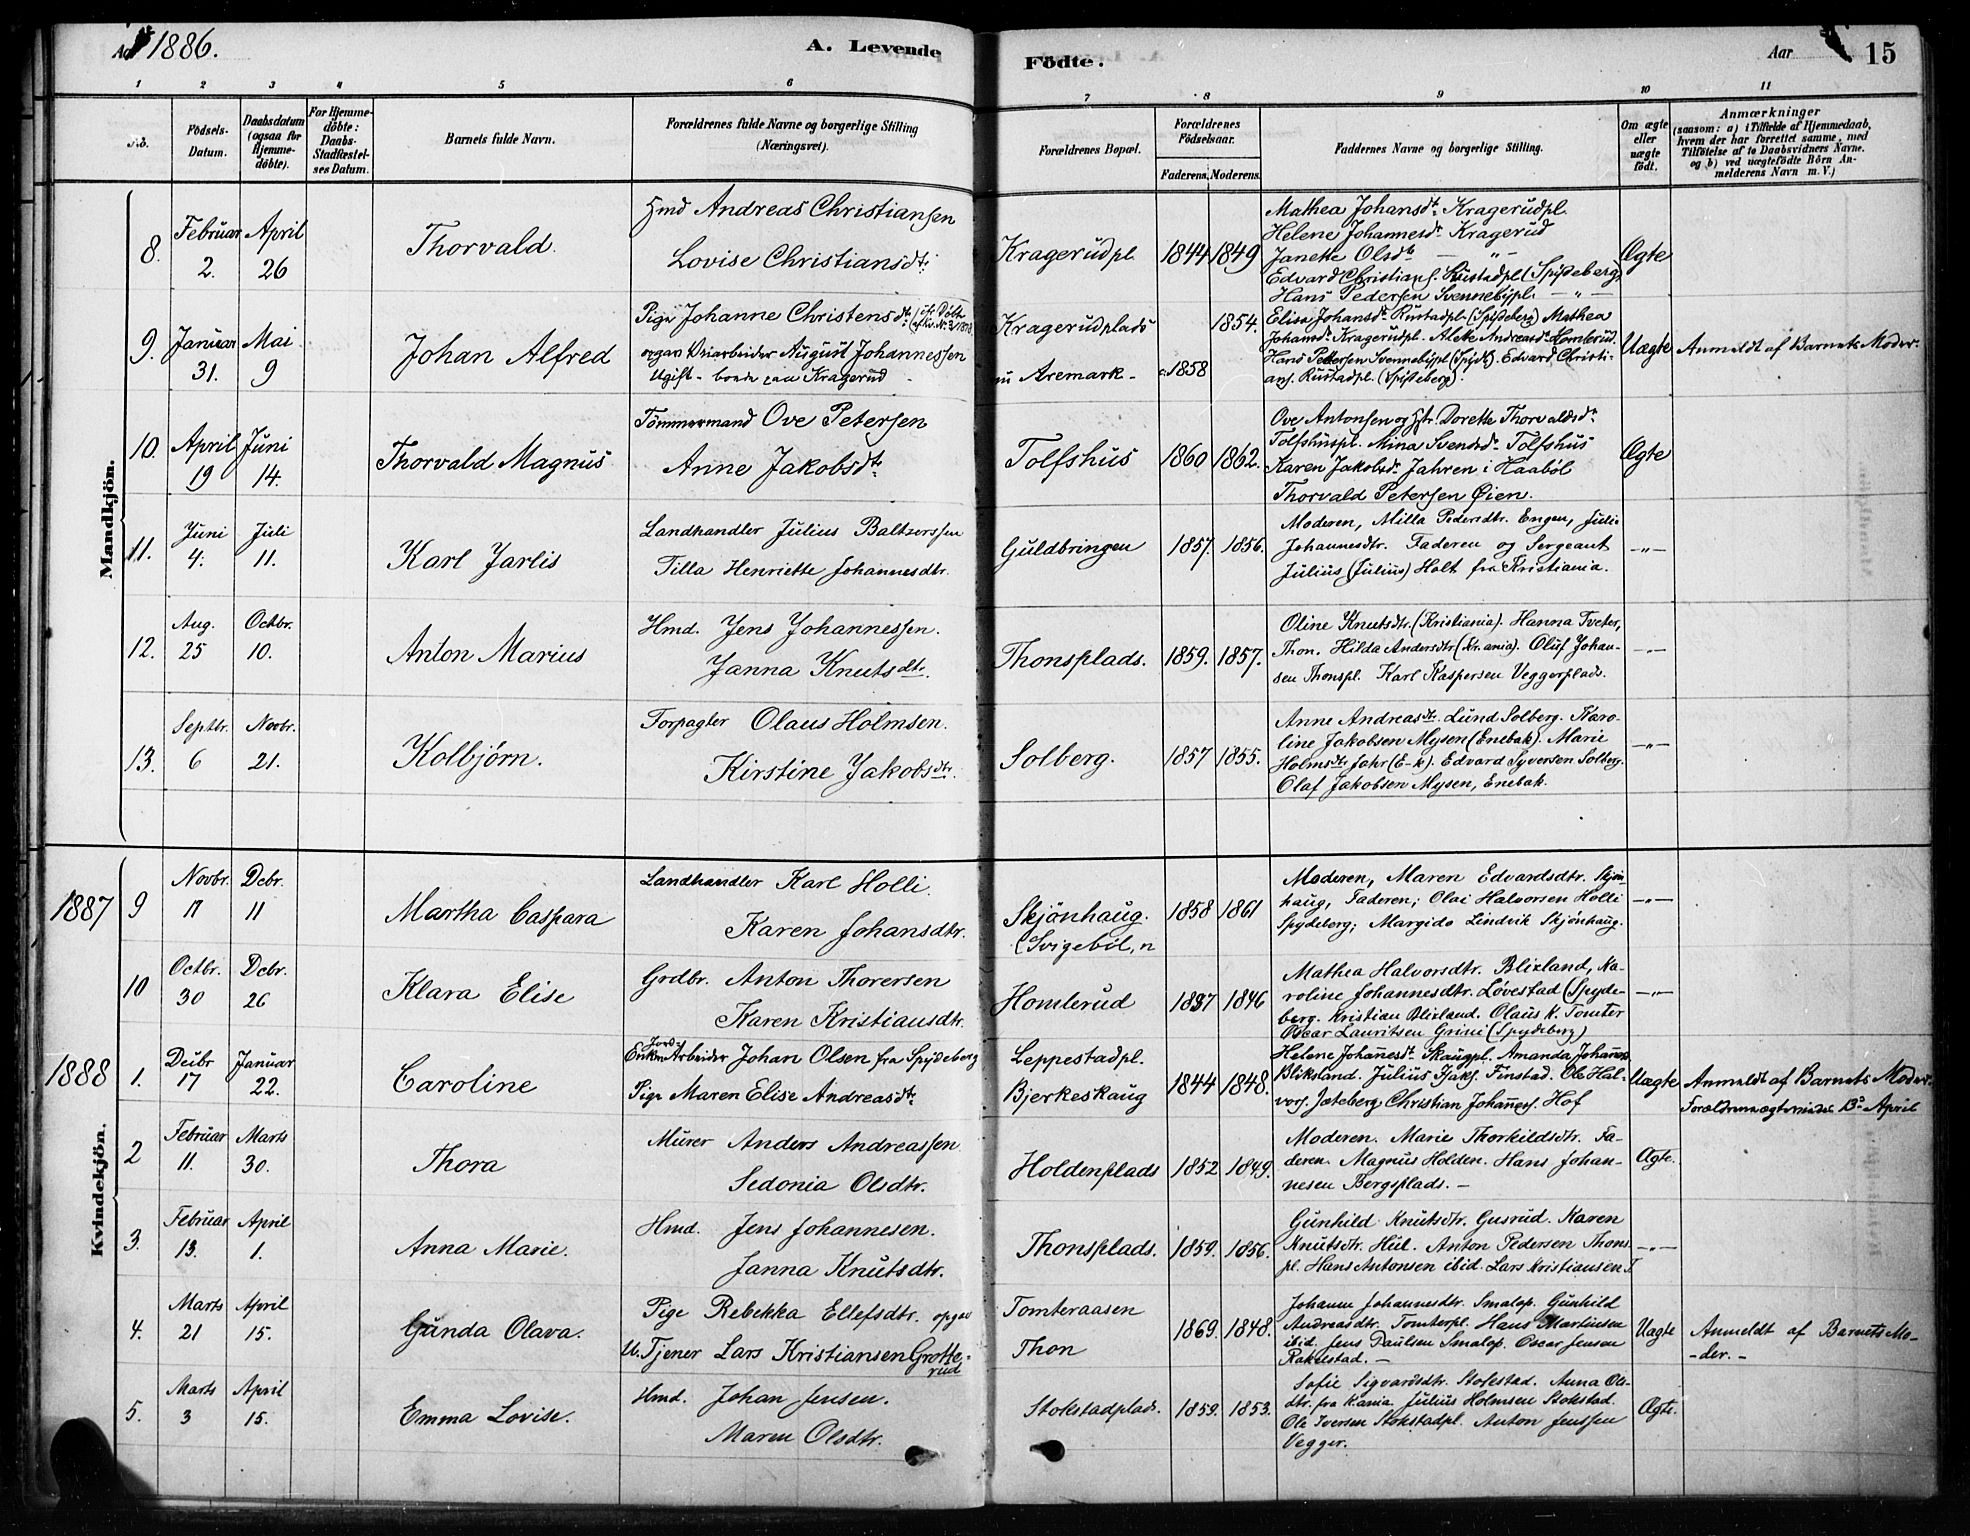 Aar 1886.
A. Levende
Födte.
Aar
15
1 2 3 4 5 6 7 8 9 10 11
No.
Födsels-
Datum.
Daabsdatum
(ogsaa for
Hjemme-
döbte).
For Hjemme-
döbte:
Daabs-
Stadfæstel-
ses Datum.
Barnets fulde Navn.
Forældrenes fulde Navne og borgerlige Stilling
(Næringsvei).
Forældrenes Bopæl.
Forældrenes
Födselsaar.
Faderens. Moderens.
Faddernes Navne og borgerlige Stilling.
Om ægte
eller
uægte
födt.
Anmærkninger
(saasom: a) i Tilfælde af Hjemmedaab,
hvem der har forrettet samme, med
Tilföielse af to Daabsvidners Navne.
og b) ved uægtefödte Börn An-
melderens Navn m. V.)
Mandkjön.
8.
Februar
2.
April
26
Thorvald.
Hmd Andreas Christiansen
Lovise Christiansdt.
Kragerudpl.
1844 1849
Mathea Johansdt. Kragerudpl.
Helene Johannesdt. Kragerud
Janette Olsdt. — " —
Edvard Christians. Rustadpl. (Spideberg)
Hans Pedersen Svennebypl. — " —
Ægte
9.
Januar
31.
Mai
9
Johan Alfred
Pige Johanne Christensdt.
August Johannessen
Ugift - boende paa Kragerud
Kragerudplads
Aremark -
1854.
1858
Elise Johansdt. Rustadpl. (Spideberg) Mathea
Johansdt. Kragerudpl. Alette Andreasdt. Homlerud.
Hans Pettersen Svennebypl. (Spydb). Edvard Christi-
ans. Rustadpl. (Spideberg).
Uægte
Anmeldt af Barnets Moder.
10.
April
19
Juni
14.
Thorvald Magnus
Tömmermand Ove Petersen
Anne Jakobsdt.
Tolfshus
1860 1862.
Ove Antonsen og Hstr. Dorette Thorvaldsdt.
Tolfshuspl. Mina Svendsdt. Tolfshus
Karen Jakobsdt. Jahren i Haaböl
Thorvald Petersen Øien.
Ægte
11.
Juni
4.
Juli
11.
Karl Jarlis
Landhandler Julius Baltzerssen
Tilla Henriette Johannesdtr.
Guldbringen
1857. 1856.
Moderen, Milla Pedersdtr. Engen, Julie
Johannesdtr. Faderen og Sergeant
Julius (Julius) Holt fra Kristiania.
— " —
12.
Aug.
25
Octbr.
10.
Anton Marius
Hmd. Jens Johannessen.
Janna Knutsdtr.
Thonsplads.
1859. 1857.
Oline Knutsdtr. (Kristiania). Hanna Tveter,
Thon. Hilda Andersdtr. (Kr.ania). Oluf Johan-
sen Thonspl. Karl Kaspersen Veggerplads.
— " —
13.
Septbr.
6
Novbr.
21.
Kolbjørn.
Forpagter Olaus Holmsen.
Kirstine Jakobsdtr.
Solberg.
1857 1855.
Anne Andreasdtr. Lund Solberg. Karo-
line Jakobsen Mysen (Enebak). Marie
Holmsdtr. Jahr (E-k). Edvard Syversen Solberg.
Olaf Jakobsen Mysen, Enebak.
— " —
Kvindekjön.
1887
9
Novbr.
17
Dcbr.
11
Martha Caspara
Landhandler Karl Holli.
Karen Johansdtr.
Skjønhaug.
(Svigeböl,
1858 1861
Moderen, Maren Edvardsdtr. Skjøn-
haug, Faderen; Olai Halvorsen Holli
Spydeberg; Margido Lindvik Skjønhaug.
— " —
10
Octbr.
30
Dcbr.
26
Klara Elise
Grdbr. Anton Thoresen
Karen Kristiansdtr.
Homlerud
1837 1846
Mathea Halvorsdtr. Blixland, Ka-
roline Johannesdtr. Løvestad (Spyde-
berg. Kristian Blixland. Olaus K. Tomter
Oscar Lauritsen Grini (Spydeberg)
— " —
1888
1.
Decbr
17
Januar
22.
Caroline
Enkem. Jord-
Arbeider Johan Olsen fra Spydeberg
Pige Maren Elise Andreasdt.
Leppestadpl.
Bjerkeskaug
1844 1848.
Helene Johannesdt. Skaugpl. Amanda Johannes
Bliksland. Julius Isaks. Finstad. Ole Hal-
vors. Jæteberg Christian Johannes. Hof
Uægte
Anmeldt af Barnets Moder.
April
2
Februar
11.
Marts
30.
Thora
Murer Anders Andreassen
Sedonia Olsdtr.
Holdenplads
1852 1849.
Moderen. Marie Thorkildsdtr. Fa-
deren. Magnus Holden. Hans Johan-
nesen Bergsplads. —
Ægte.
3.
Februar
13.
April
1.
Anna Marie.
Hmd. Jens Johannesen.
Janna Knutsdtr.
Thonsplads.
1859. 1856.
Gunhild Knutsdtr. Gusrud. Karen
Knutsdtr. Hül. Anton Pedersen Thons-
pl. Hans Antonsen ibid. Lars Kristiansen T
— " —
4.
Marts
21
April
15.
Gunda Olava.
Pige Rebekka Ellefsdtr. opgav
U. Tjener Lars Kristiansen Grotte-
rud
Tomteraasen
Thon
1869. 1848.
Johanne Johannesdtr. Smalop. Gunhild
Andreasdtr. Tomterpl. Hans Martinsen
ibid. Jens Paulsen Smalop. Oscar Jensen
Rakkestad. —
Uægte
Anmeldt af Barnets Mo-
-der. -
5.
Marts
3
April
15.
Emma Lovise.
Hmd. Johan Jensen.
Maren Olsdtr.
Stokstadplads.
1859. 1853.
Sofie Sigvardsdtr. Stokstad. Anna Ols-
dtr. fra Kania. Julius Holmsen Stokstad.
Ole Iversen Stokstadpl. Anton Jenssen
Vegger.
Ægte.